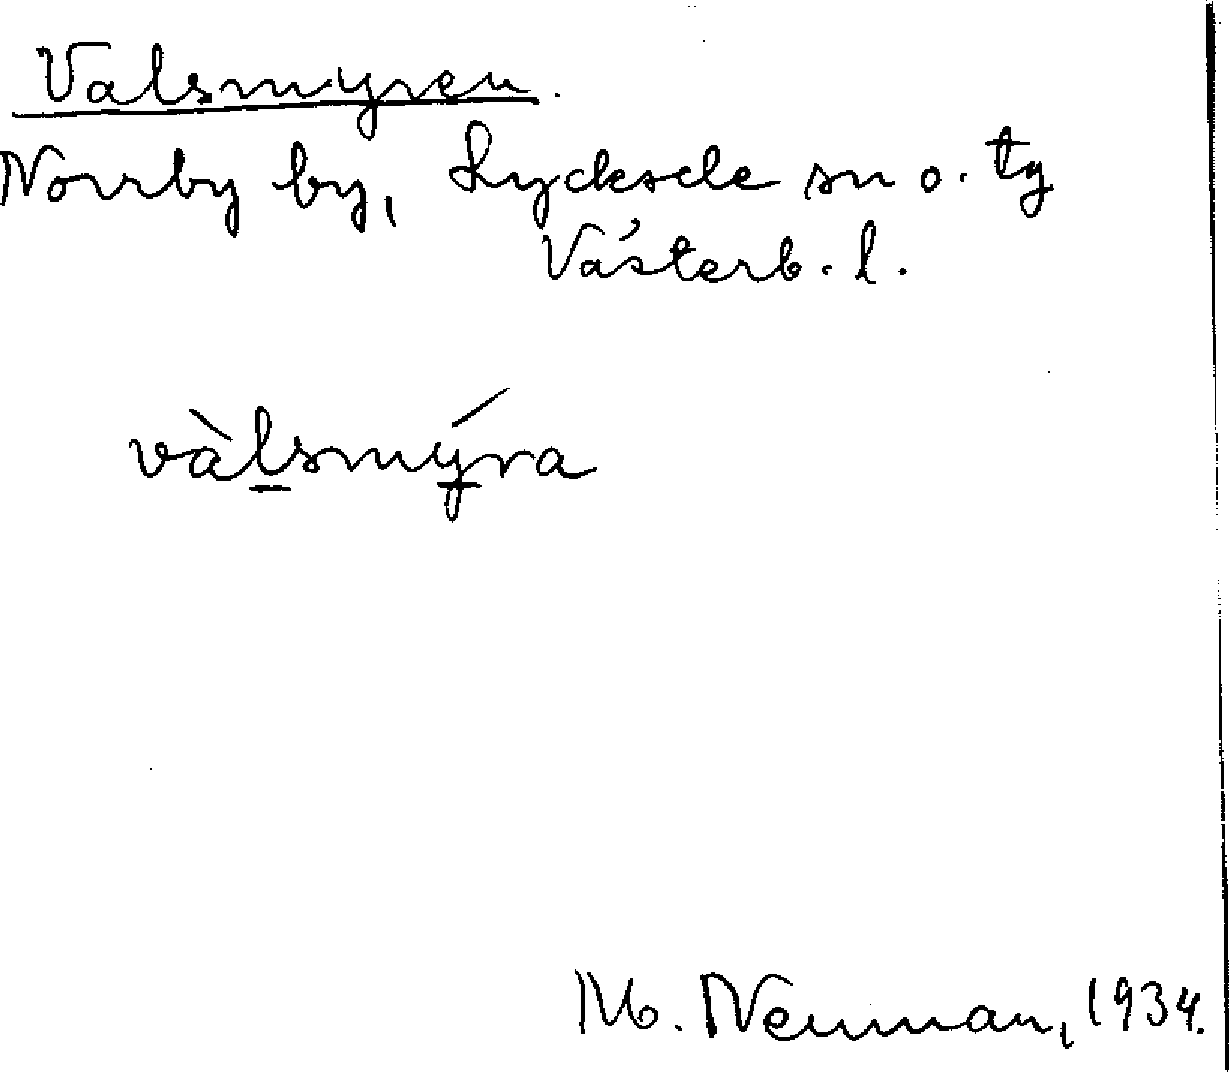 Valsmyren.
Norrby by, Lycksele sn o. tg
Västerb. l.
vàlsmýra
M. Neuman, 1934.